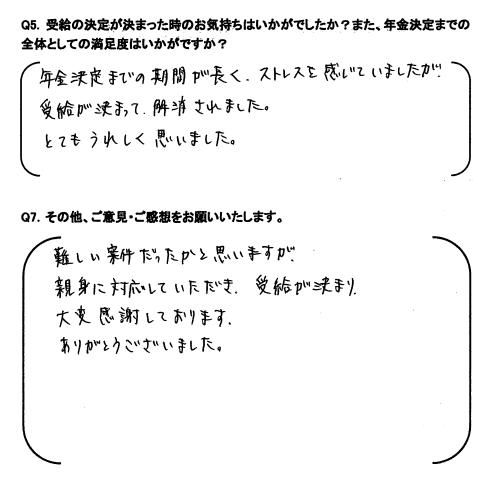 Q5. 受給の決定が決まった時のお気持ちはいかがでしたか？また、年金決定までの
全体としての満足度はいかがですか？
年金決定までの期間が長く、ストレスを感じていましたが、
受給が決まって、解消されました。
とてもうれしく思いました。
Q7. その他、ご意見・ご感想をお願いいたします。
難しい案件だったかと思いますが、
親身に対応していただき、受給が決まり、
大変感謝しております。
ありがとうございました。